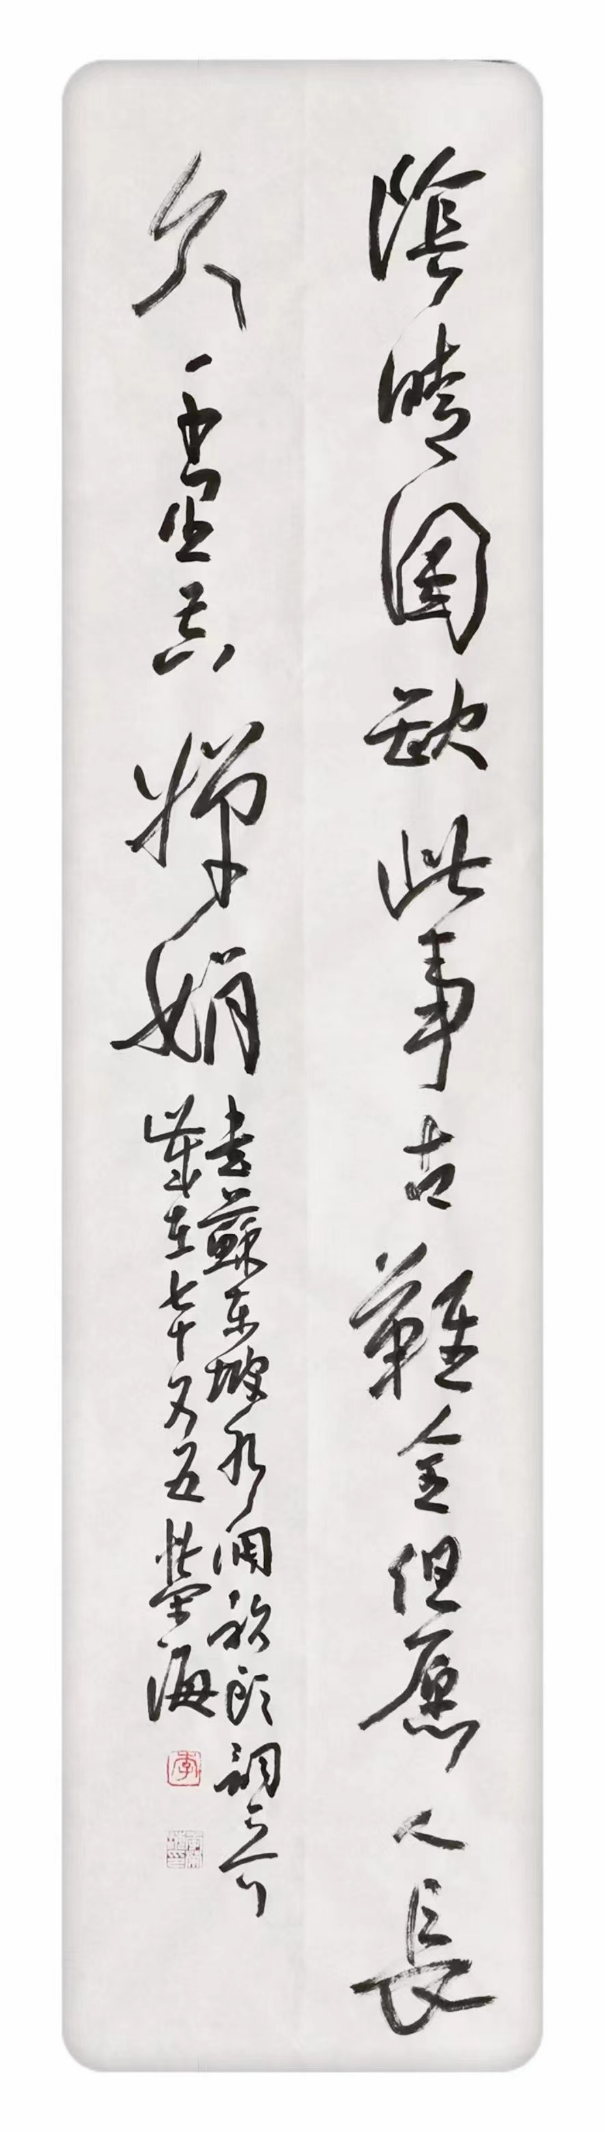 陰晴圓缺此事古難全但愿人長
久千里共嬋娟
書蘇东坡水调歌頭詞之句
歲在七十又五 榮海
李